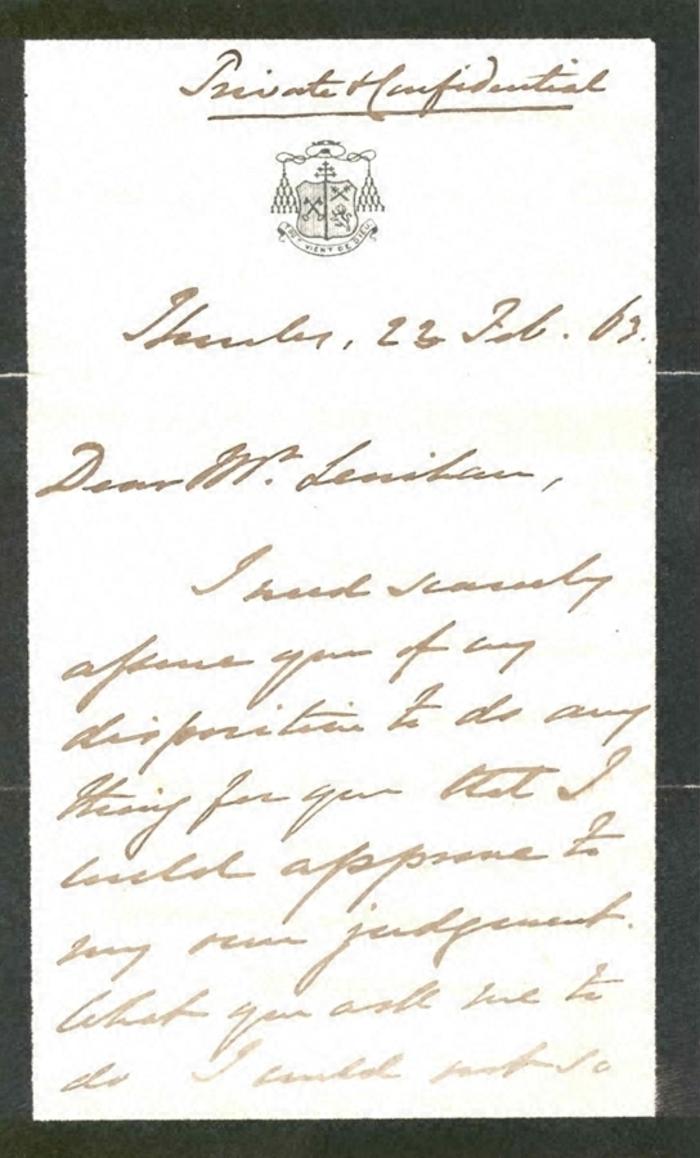 Private & Confidential
TOUT VIENT DE DIEU
Thurles, 22 Feb. 63.
Dear Mr. Lenihan,
I need scarcely
assure you of my
disposition to do any
thing for you that I
could approve to
my own judgement.
What you ask me to
do I could not so